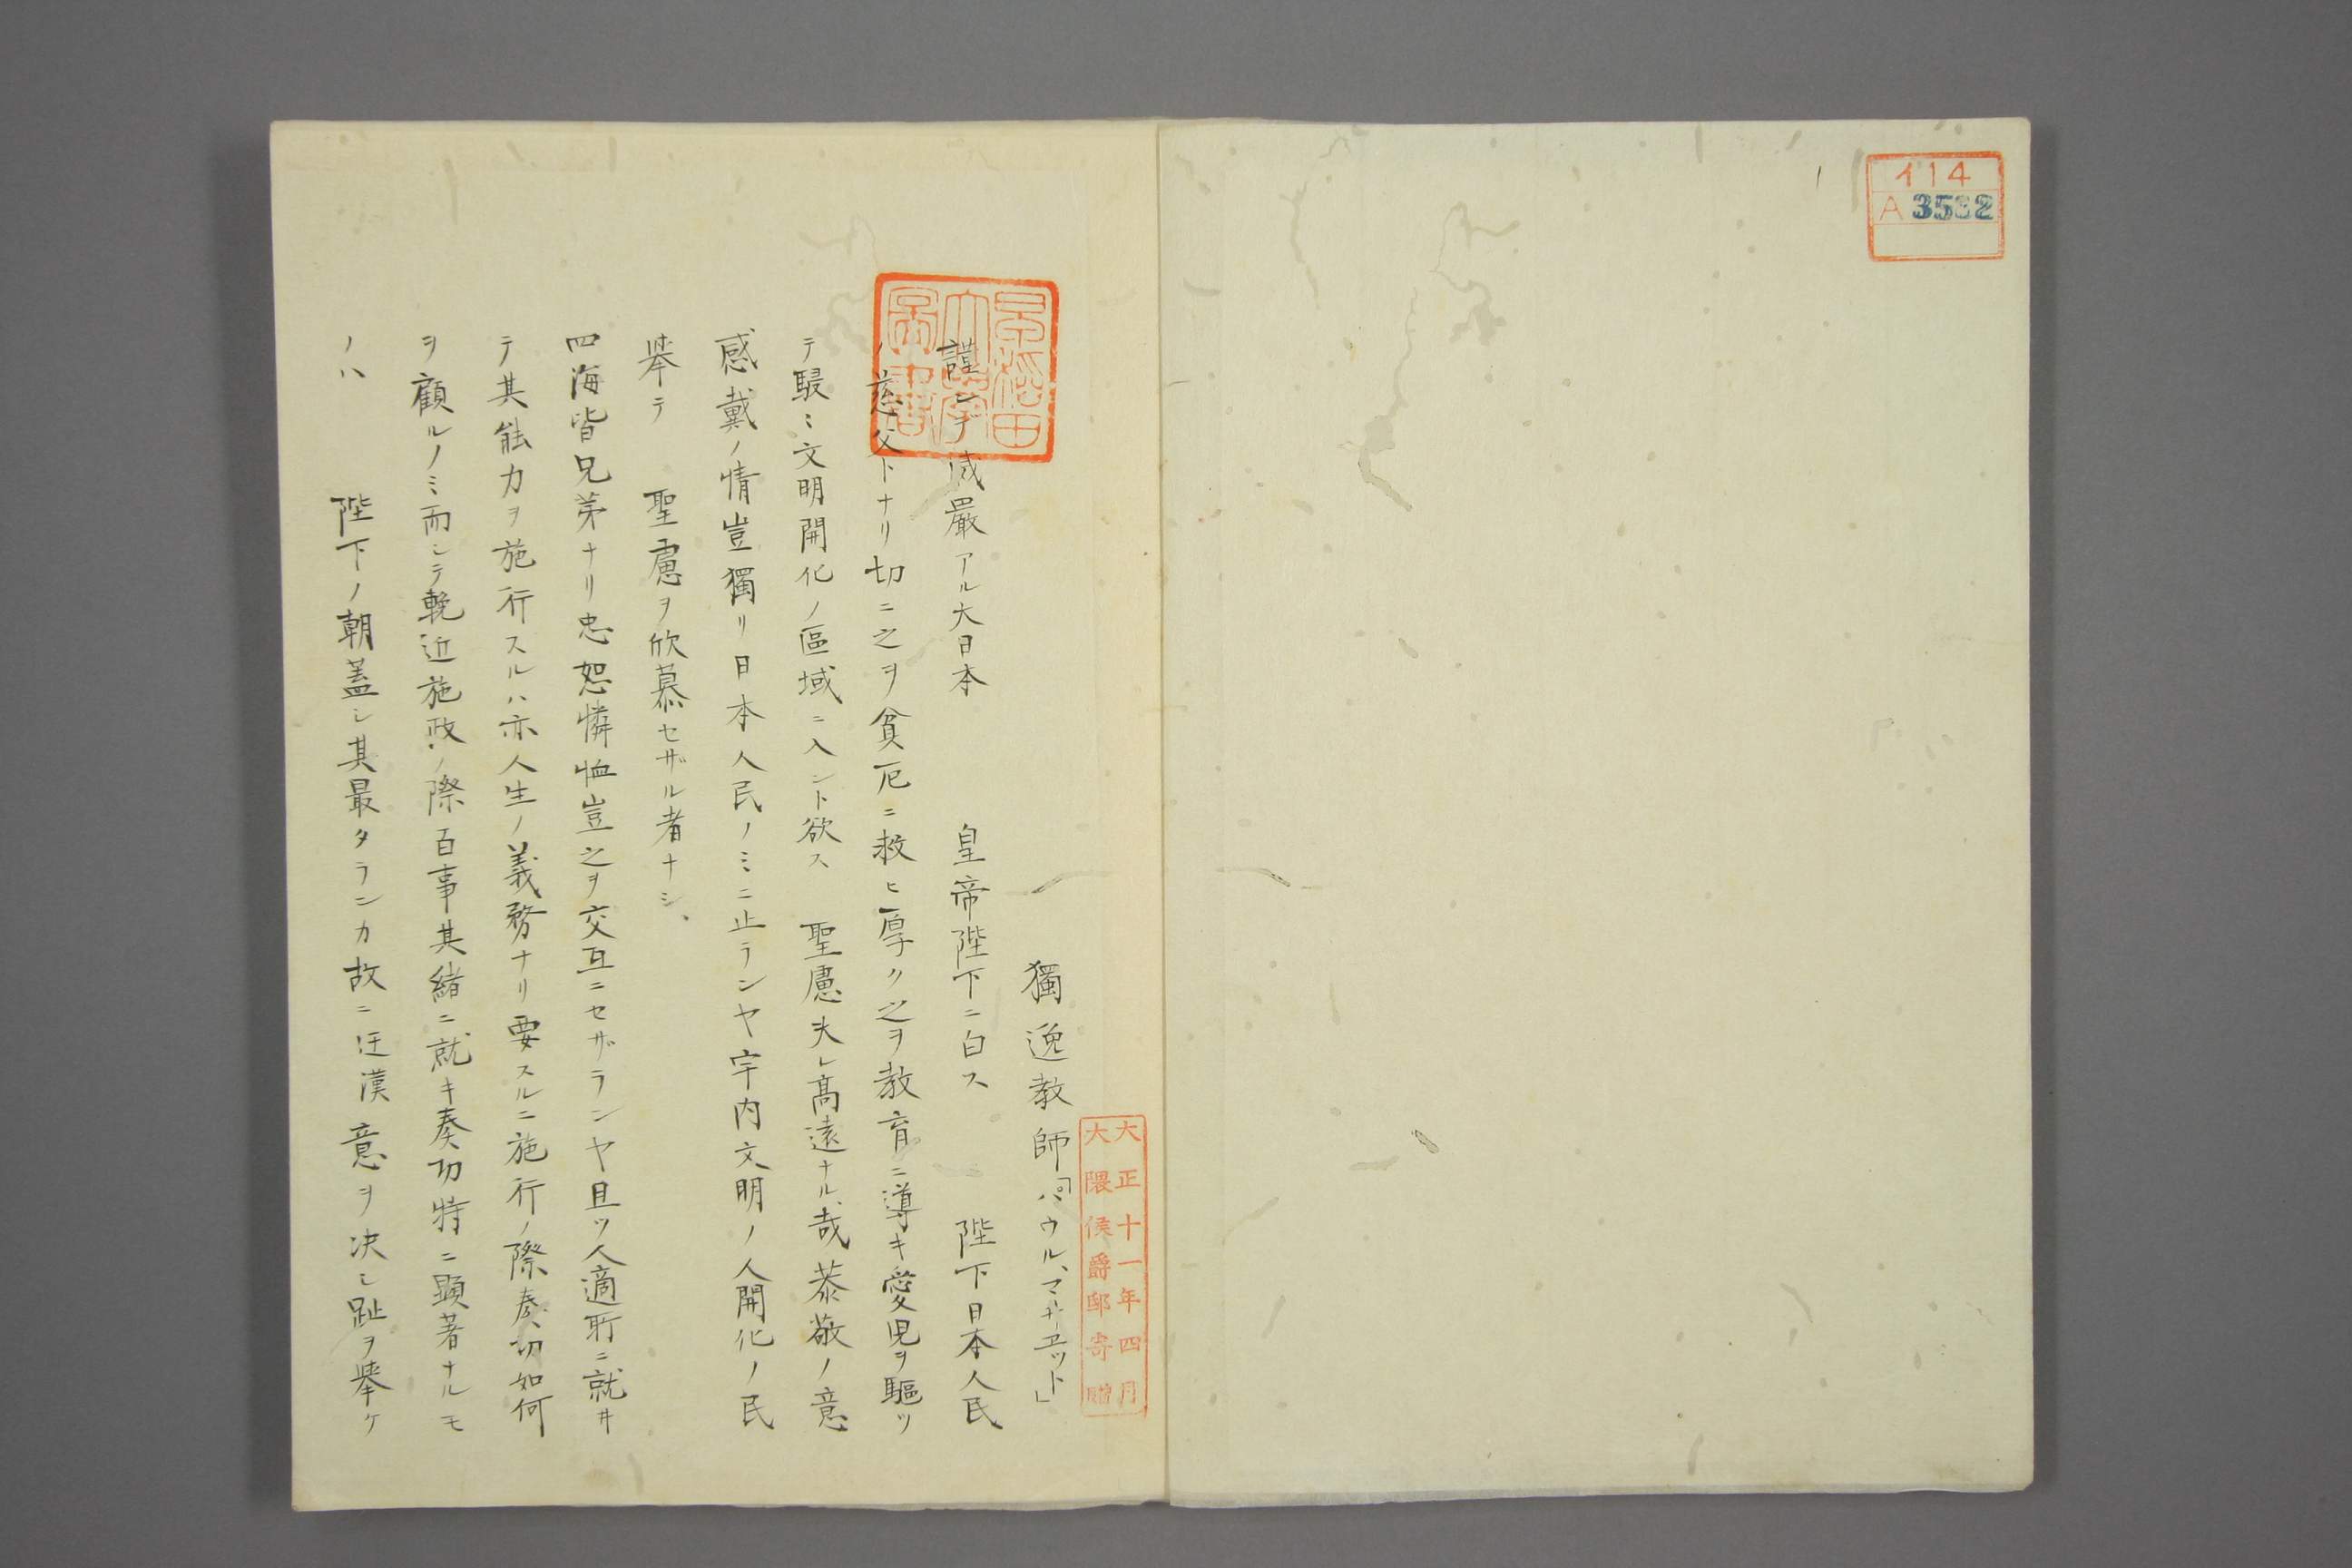 イ14
A 3532
大正十一年四月
大隈侯爵邸寄贈
早稲田大学図書
獨逸教師「パウル、マヰエット」
謹ンデ威嚴アル大日本 皇帝陛下ニ白ス 陛下日本人民
ノ慈父トナリ切ニ之ヲ貧厄ニ救ヒ厚ク之ヲ教育ニ導キ愛児ヲ驅ツ
テ駸ミ文明開化ノ區域ニ入ント欲ス 聖慮夫レ髙遠ナル哉恭敬ノ意
感戴ノ情豈獨リ日本人民ノミニ止ランヤ宇内文明ノ人開化ノ民
挙テ 聖慮ヲ欣慕セザル者ナシ、
四海皆兄弟ナリ忠恕憐恤豈之ヲ交互ニセザランヤ且ツ人適所ニ就ヰ
テ其能力ヲ施行スルハ亦人生ノ義務ナリ要スルニ施行ノ際奏功如何
ヲ顧ルノミ而シテ輓近施政ノ際百事其緒ニ就キ奏功特ニ顕著ナルモ
ノハ 陛下ノ朝蓋シ其最タランカ故ニ迂漢意ヲ决シ趾ヲ挙ケ